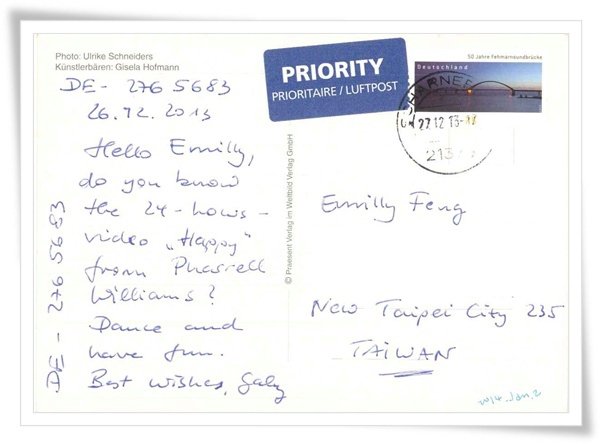 Photo: Ulrike Schneiders
Künstlerbären: Gisela Hofmann
DE - 276 5683
26.12.2013
Hello Emilly,
do you know
the 24-hours-
video „Happy"
from Pharrell
Williams?
Dance and
have fun.
Best wishes, Gaby
DE - 276 5683
© Praesent Verlag im Weltbild Verlag GmbH
PRIORITY
PRIORITAIRE / LUFTPOST
50 Jahre Fehmarnsundbrücke
Deutschland
27.12.13-17
213
Emilly Feng
New Taipei City 235
TAIWAN
2014.Jan.2